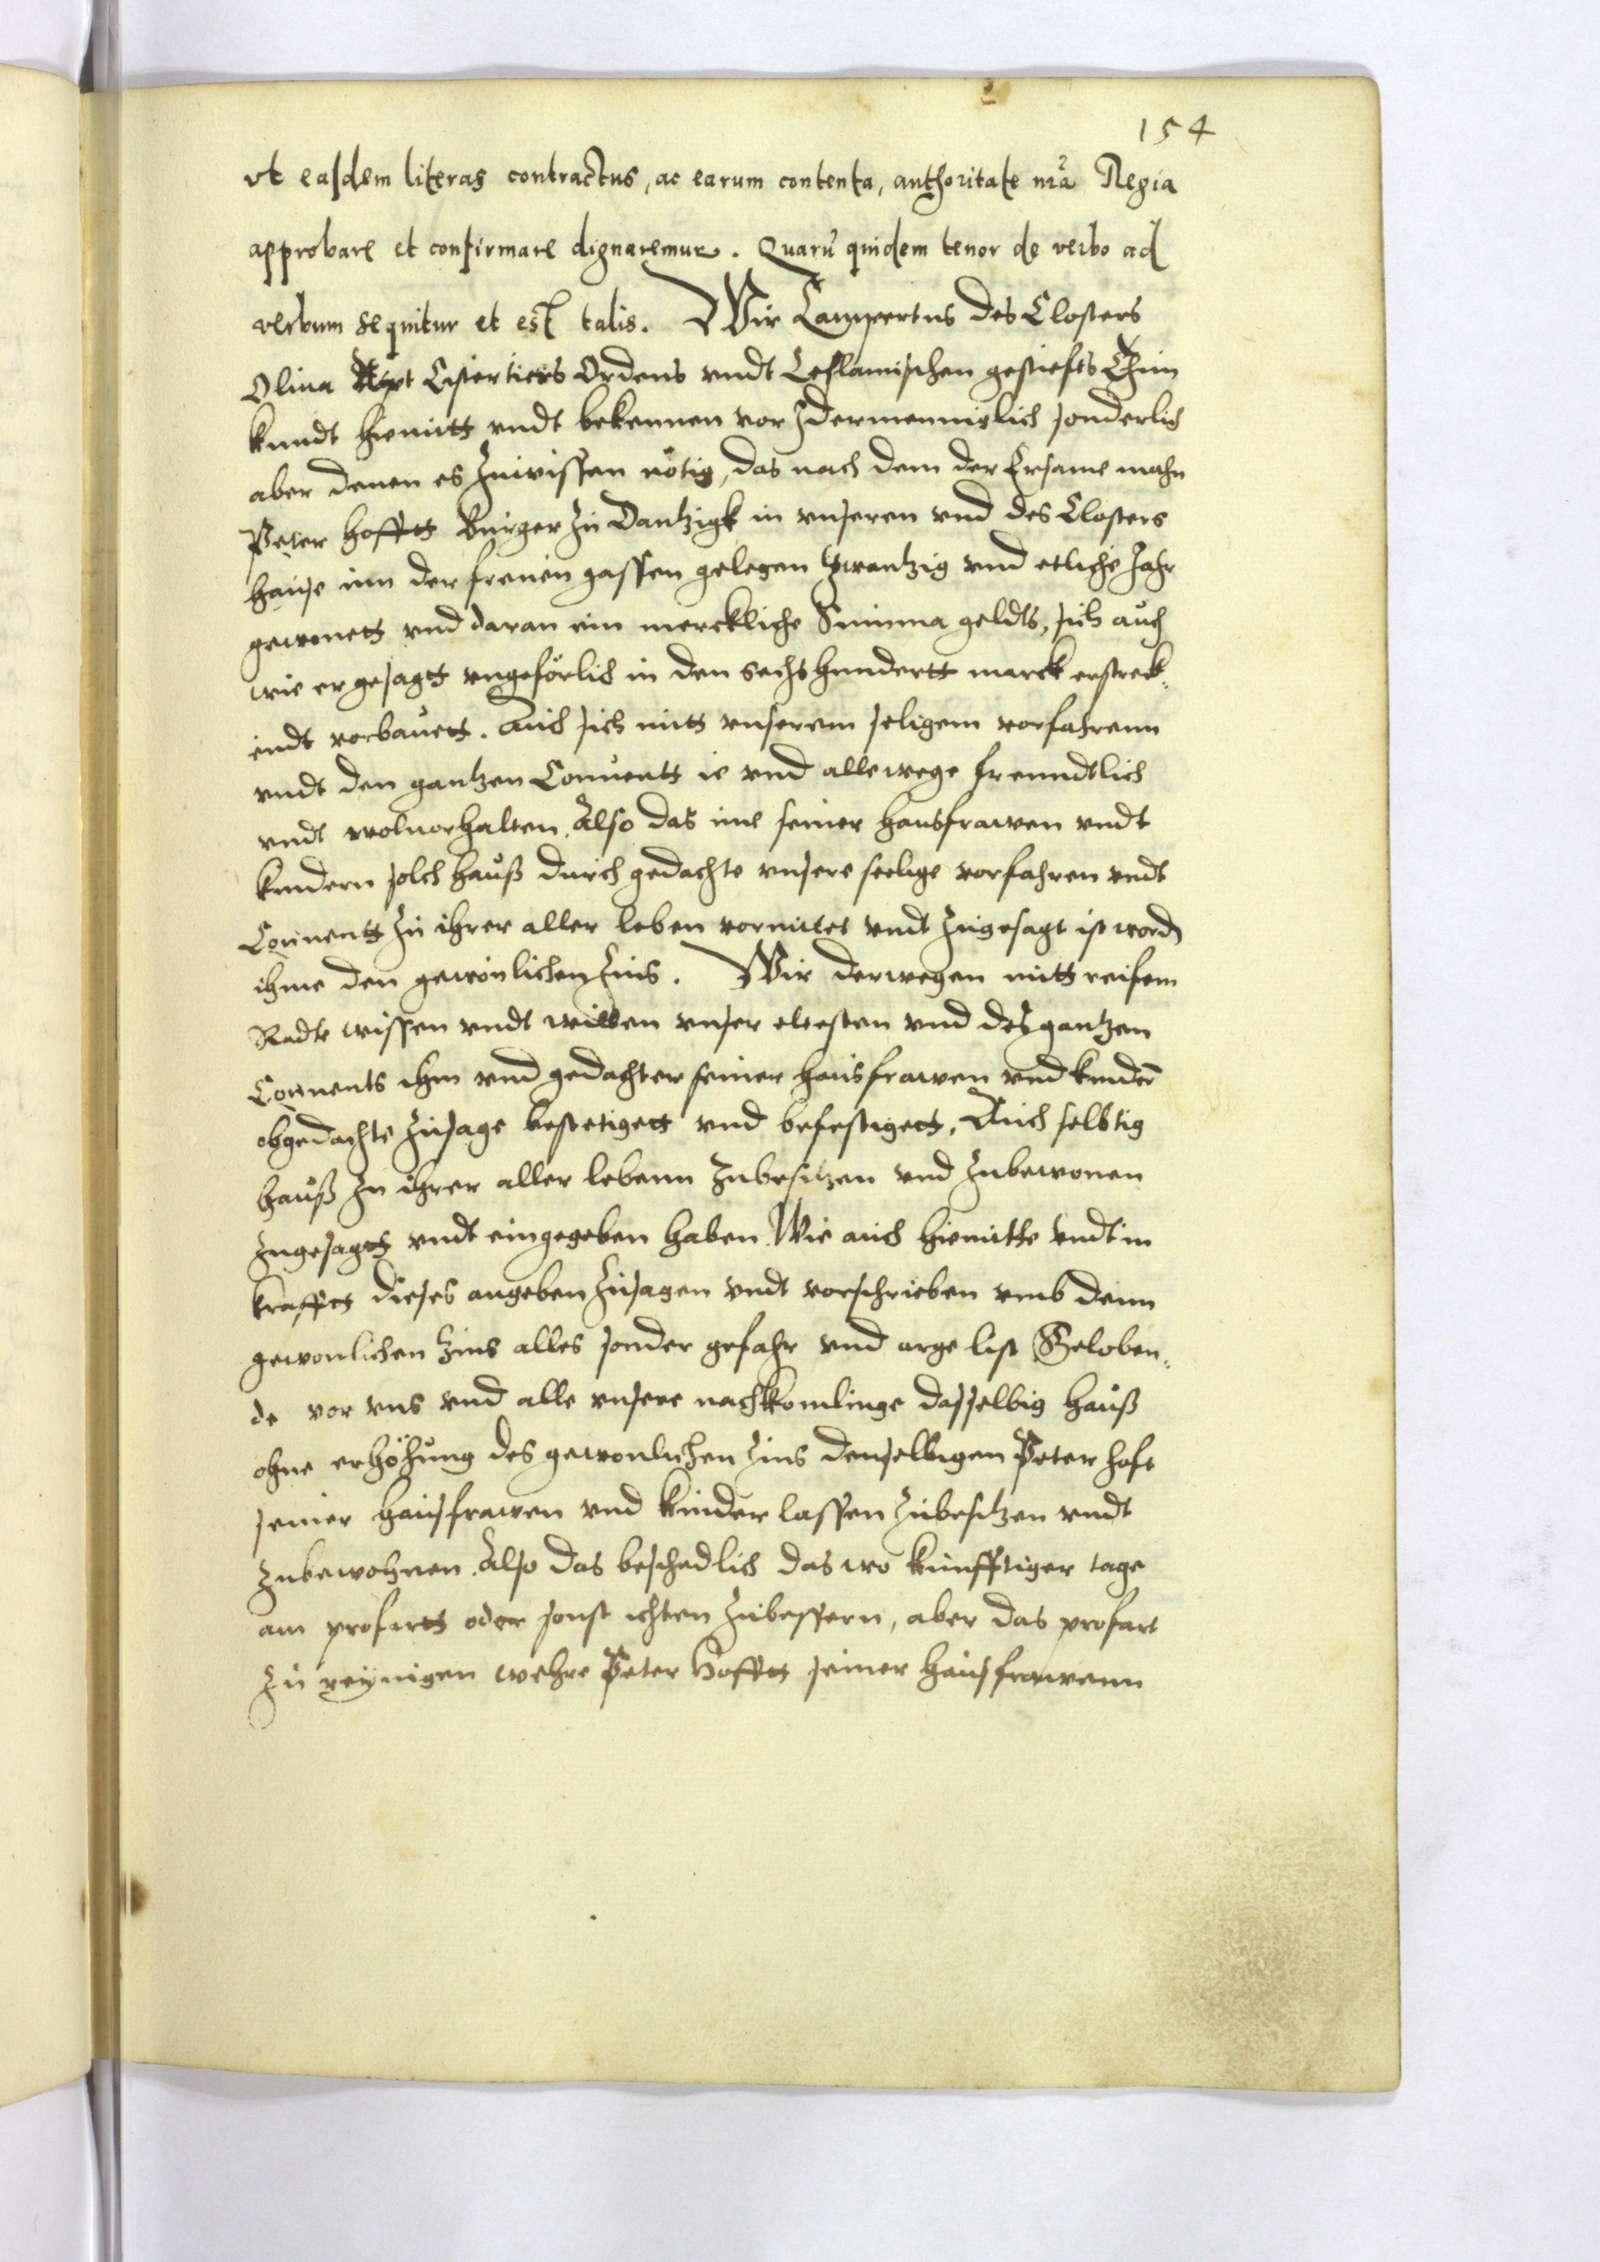 154
vt easdem literas contractus, ac earum contenta, authoritate nr̃a Regia
approbare et confirmare dignaremur. Quarũ quidem tenor de verbo ad
verbum sequitur et est talis. Wir Lampertus des Closters
Oliua Apt Cistertiers Ordens vndt Leslawischen gestiefts Thun
kundt hiemitt vndt bekennen vor Jdermenniglich sonderlich
aber denen es zuwissen nötig, das nach dem der Ersame mahn
Peter Hofftt Burger zu Dantzigk in vnseren vnd des Closters
hause inn der frauen gassen gelegen zwantzig vnd etliche Jahr
gewonett vnd daran ein merckliche Summa geldts, sich auch
wie er gesagtt vngeförlich in den sechs hundertt marck erstreck„
endt vorbauett. Auch sich mitt vnserem seligem vorfahrenn
vndt den gantzen Conuentt ie vnd allewege freundtlich
vndt wolvorhalten. Also das ime seiner hausfrawen vndt
kindern solch hauß durch gedachte vnsere seelige vorfahren vndt
Conuentt zu ihrer aller leben vormitet vndt zugesagt ist word
ihme den gewönlichen zins. Wir derwegen mitt reifem
Radte wissen vndt willen vnser elesten vnd des gantzen
Conuents ihm vnd gedachter seiner hausfrawen vnd kinder
obgedachte zusage bestetigett vnd befestigett, Auch selbtig
hauß zu ihrer aller lebenn zubesitzen vnd zubewonen
zugesagtt vndt eingegeben haben. Wie auch hiemitte vndt in
krafftt dieses angeben zusagen vndt vorschrieben vmb denn
gewonlichen zins alles sonder gefahr vnd arge list Geloben„
de vor vns vnd alle vnsere nachkomlinge dasselbig hauß
ohne erhöhung des gewonlichen zins denselbigen Peter Hoft
seiner hausfrawen vnd kinder lassen zubesitzen vndt
zubewohnen. Also das beschedlich das wo kunfftiger tage
am profartt oder sonst ichten zubessern, aber das profart
zu reynigen wehre Peter Hofftt seiner hausfrawenn